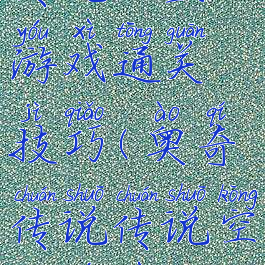 yóu xì tōng guān
游戏通关
jì qiǎo ( ào qí
技巧(奥奇
chuán shuō chuán shuō kōng
传说传说空